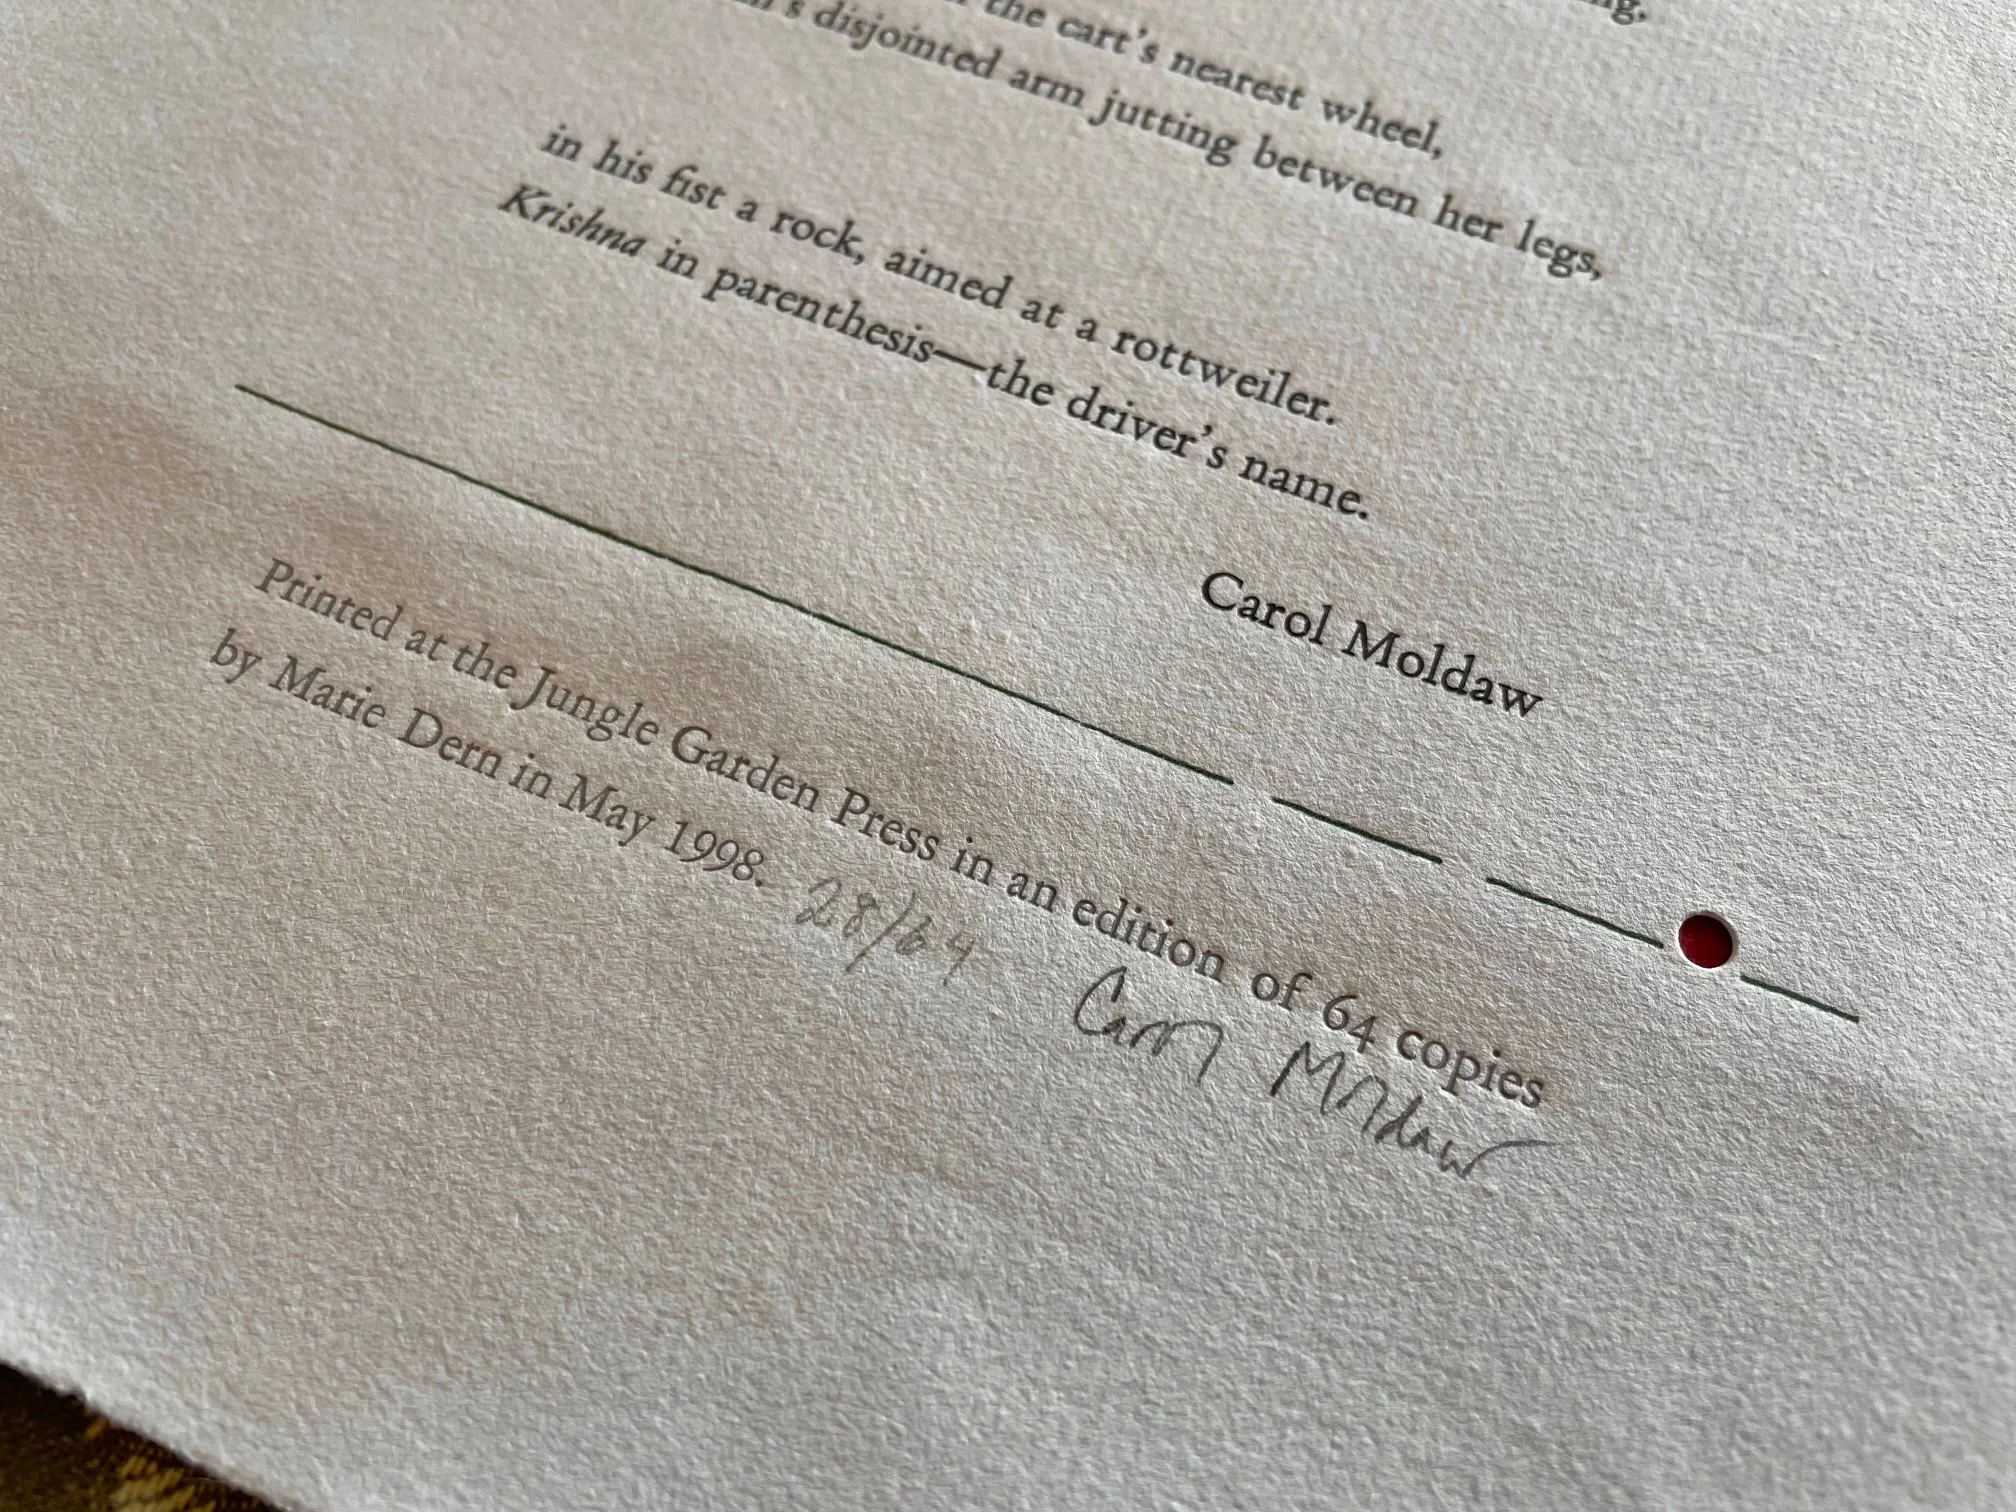 the cart's nearest wheel,
disjointed arm jutting between her legs,
in his fist a rock, aimed at a rottweiler.
Krishna in parenthesis—the driver's name.
Carol Moldaw
Printed at the Jungle Garden Press in an edition of 64 copies
by Marie Dern in May 1998. 28/64 Carol Moldaw